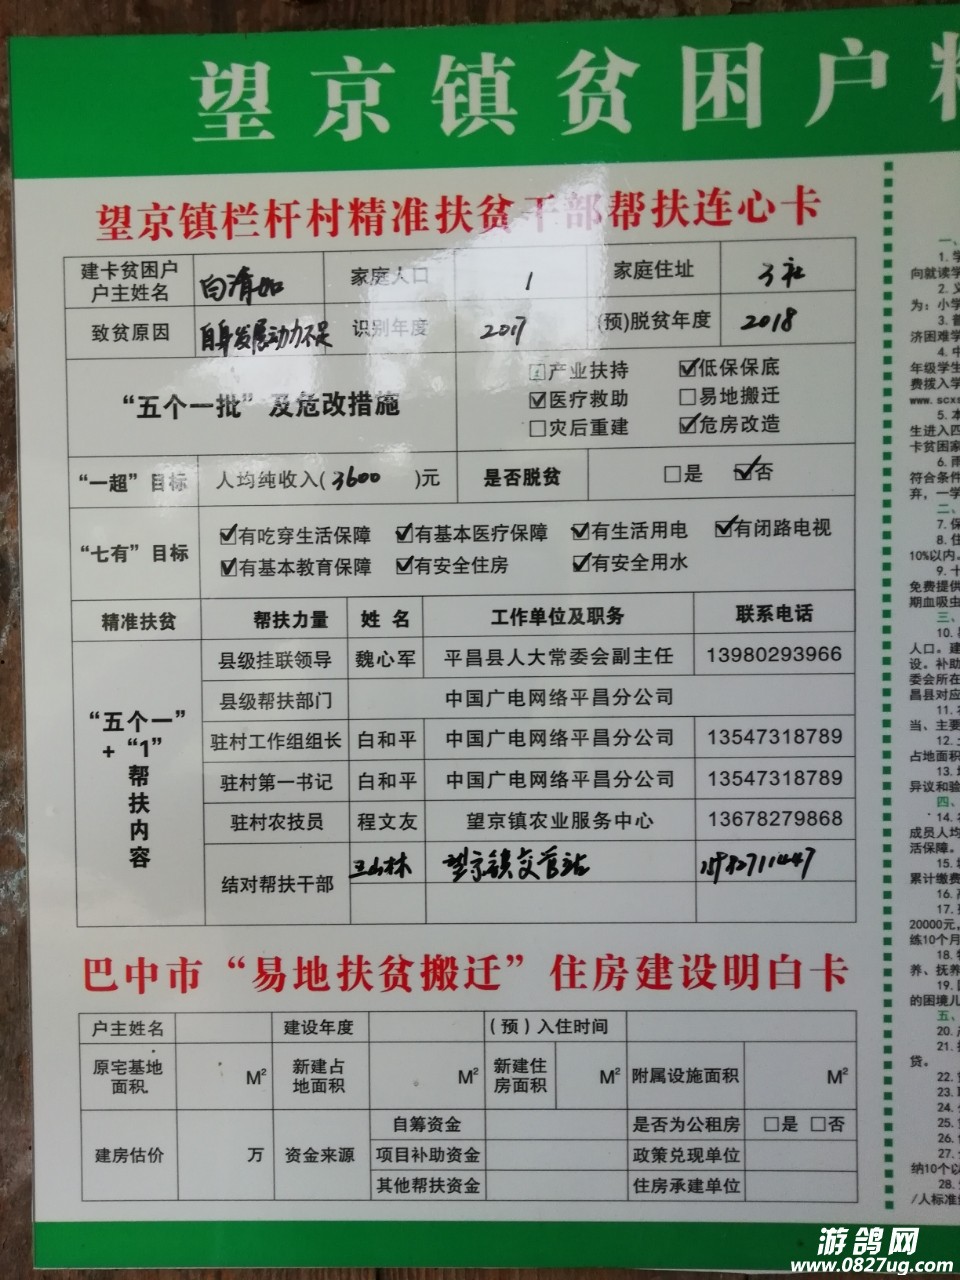 望京镇贫困户精
望京镇栏杆村精准扶贫干部帮扶连心卡
建卡贫困户户主姓名 白清如 家庭人口 1 家庭住址 3社
致贫原因 自身发展动力不足 识别年度 2017 (预)脱贫年度 2018
“五个一批”及危改措施
☑产业扶持 ☑低保保底
☑医疗救助 □易地搬迁
□灾后重建 ☑危房改造
“一超”目标 人均纯收入(3600)元 是否脱贫 □是 ☑否
“七有”目标
☑有吃穿生活保障 ☑有基本医疗保障 ☑有生活用电 ☑有闭路电视
☑有基本教育保障 ☑有安全住房 ☑有安全用水
精准扶贫 帮扶力量 姓名 工作单位及职务 联系电话
“五个一”+“1”帮扶内容
县级挂联领导 魏心军 平昌县人大常委会副主任 13980293966
县级帮扶部门 中国广电网络平昌分公司
驻村工作组组长 白和平 中国广电网络平昌分公司 13547318789
驻村第一书记 白和平 中国广电网络平昌分公司 13547318789
驻村农技员 程文友 望京镇农业服务中心 13678279868
结对帮扶干部 望京镇交管站
巴中市“易地扶贫搬迁”住房建设明白卡
户主姓名 建设年度 (预)入住时间
原宅基地面积 M² 新建占地面积 M² 新建住房面积 M² 附属设施面积 M²
建房估价 万 资金来源
自筹资金 是否为公租房 □是 □否
项目补助资金 政策兑现单位
其他帮扶资金 住房承建单位
一、
1. 学
向就读学
2. 义
为：小学
3. 普
济困难学
4. 中
年级学生
费拨入学
www.scxs
5. 本
生进入四
卡贫困家
6. 雨
符合条件
弃，一学
二、
7. 保
8. 住
10%以内。
9. 十
免费提供
期血吸虫
三、
10.
人口。建
设。补助
委会所在
昌县对应
11.
当、主要
12.
占地面积
13.
异议和验
四、
14.
成员人均
活保障。
15.
累计缴费
16.
17.
20000元，
练10个月
18.
养、抚养
19.
的困境儿
五、
20.
21.
贷。
22.
23.
24.
25.
26.
27.
纳10个以
28.
/人标准
游鸽网
www.0827ug.com